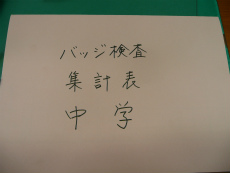 バッジ検査
集計表
中学